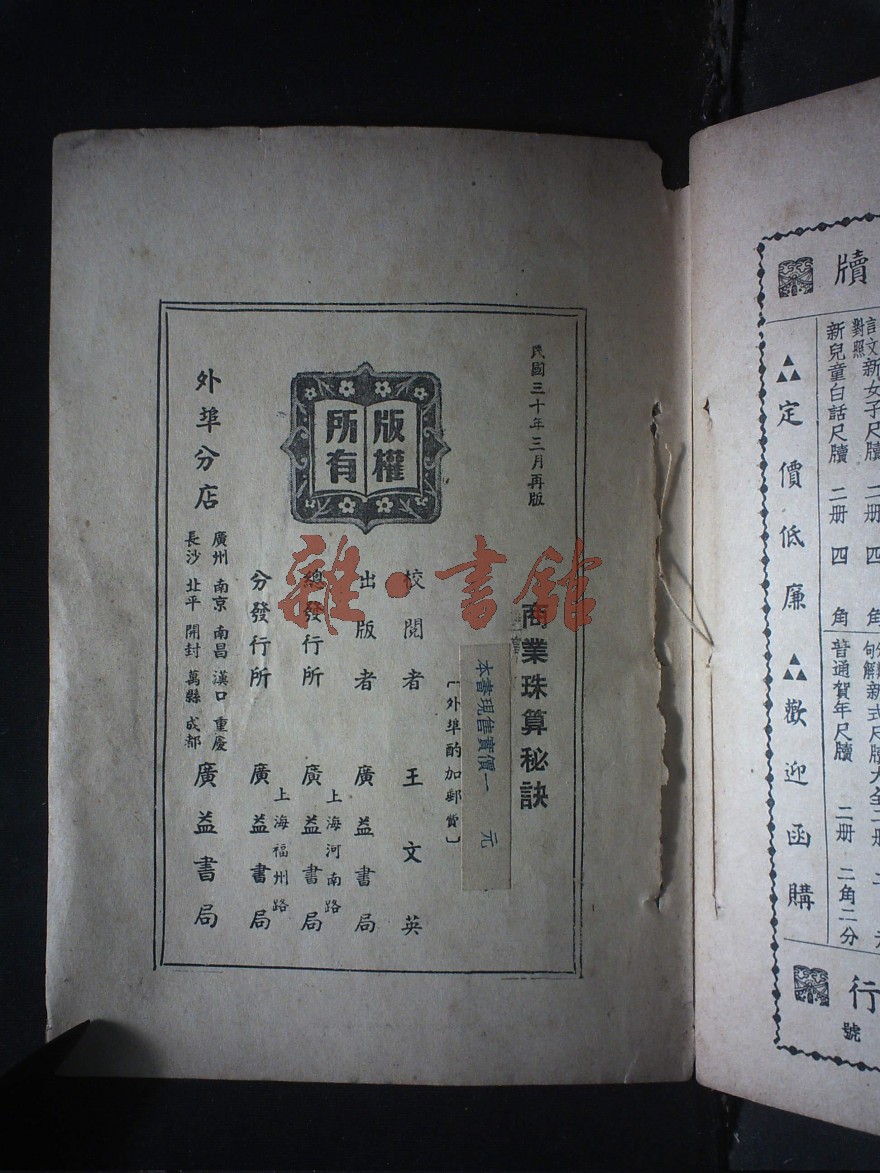 民國三十年三月再版
版權
所有
商業珠算秘訣
本書現售實價一元
〔外埠酌加郵費〕
校閱者 王文英
出版者 廣益書局
總發行所 上海河南路 廣益書局
分發行所 上海福州路 廣益書局
外埠分店 廣州 南京 南昌 漢口 重慶
長沙 北平 開封 萬縣 成都 廣益書局
雜·書館
牘
言文對照新女子尺牘 二册 四角
新兒童白話尺牘 二册 四角
普通賀年尺牘 二册 二角二分
定價低廉 歡迎函購
行
號